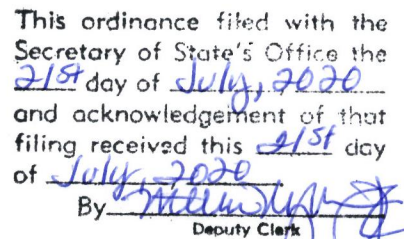 This ordinance filed with the
Secretary of State's Office the
21st day of July, 2020
and acknowledgement of that
filing received this 21st day
of July, 2020
By
Deputy Clerk